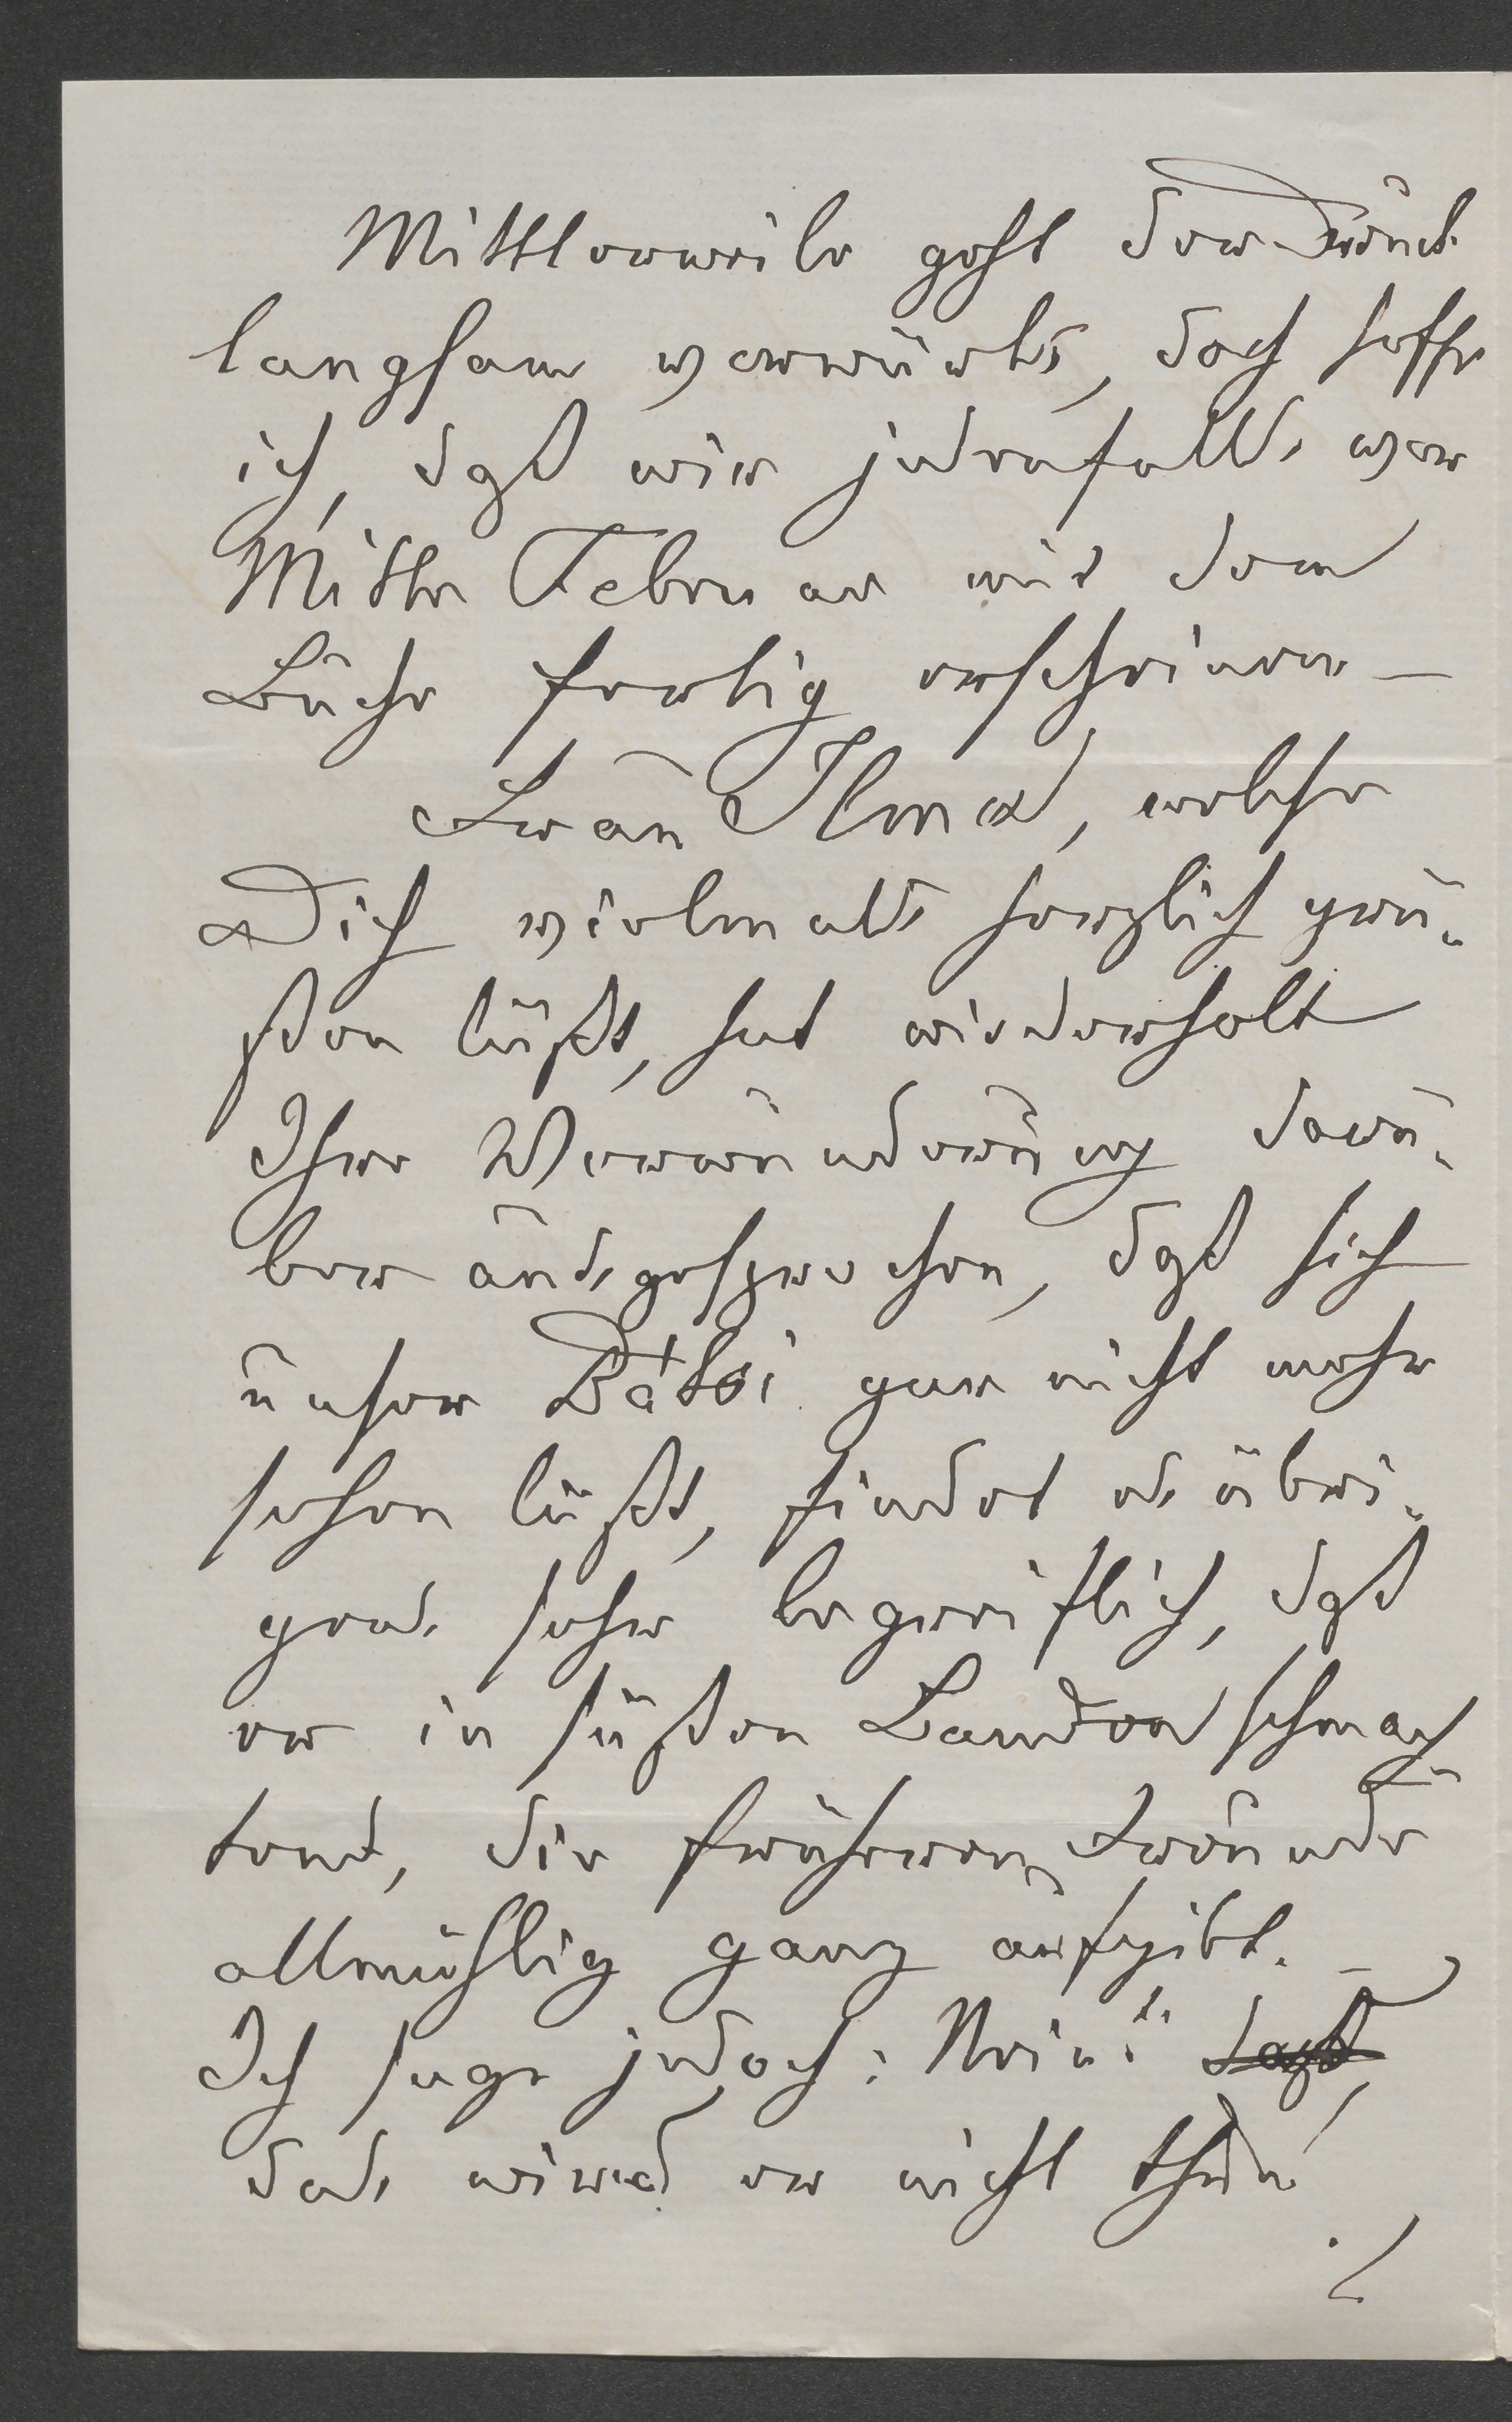 Mittlerweile geht der Druck
langsam vorwärts, doch hoffe
ich, daß wir jedenfalls vor
Mitte Februar mit dem
Buche fertig erscheinen –
Frau Ilma, welche
Dich vielmals herzlich grü-
ßen läßt, hat wiederholt
Ihre Verwunderung darü-
ber ausgesprochen, daß sich
unser Bátsi gar nicht mehr
sehen läßt, findet es übri-
gens sehr begreiflich, daß
er in süßen Banden schmach-
tend, die früheren Freunde
allmählig ganz aufgibt. –
Ich sage jedoch: Nein! daß
das wird er nicht thun!